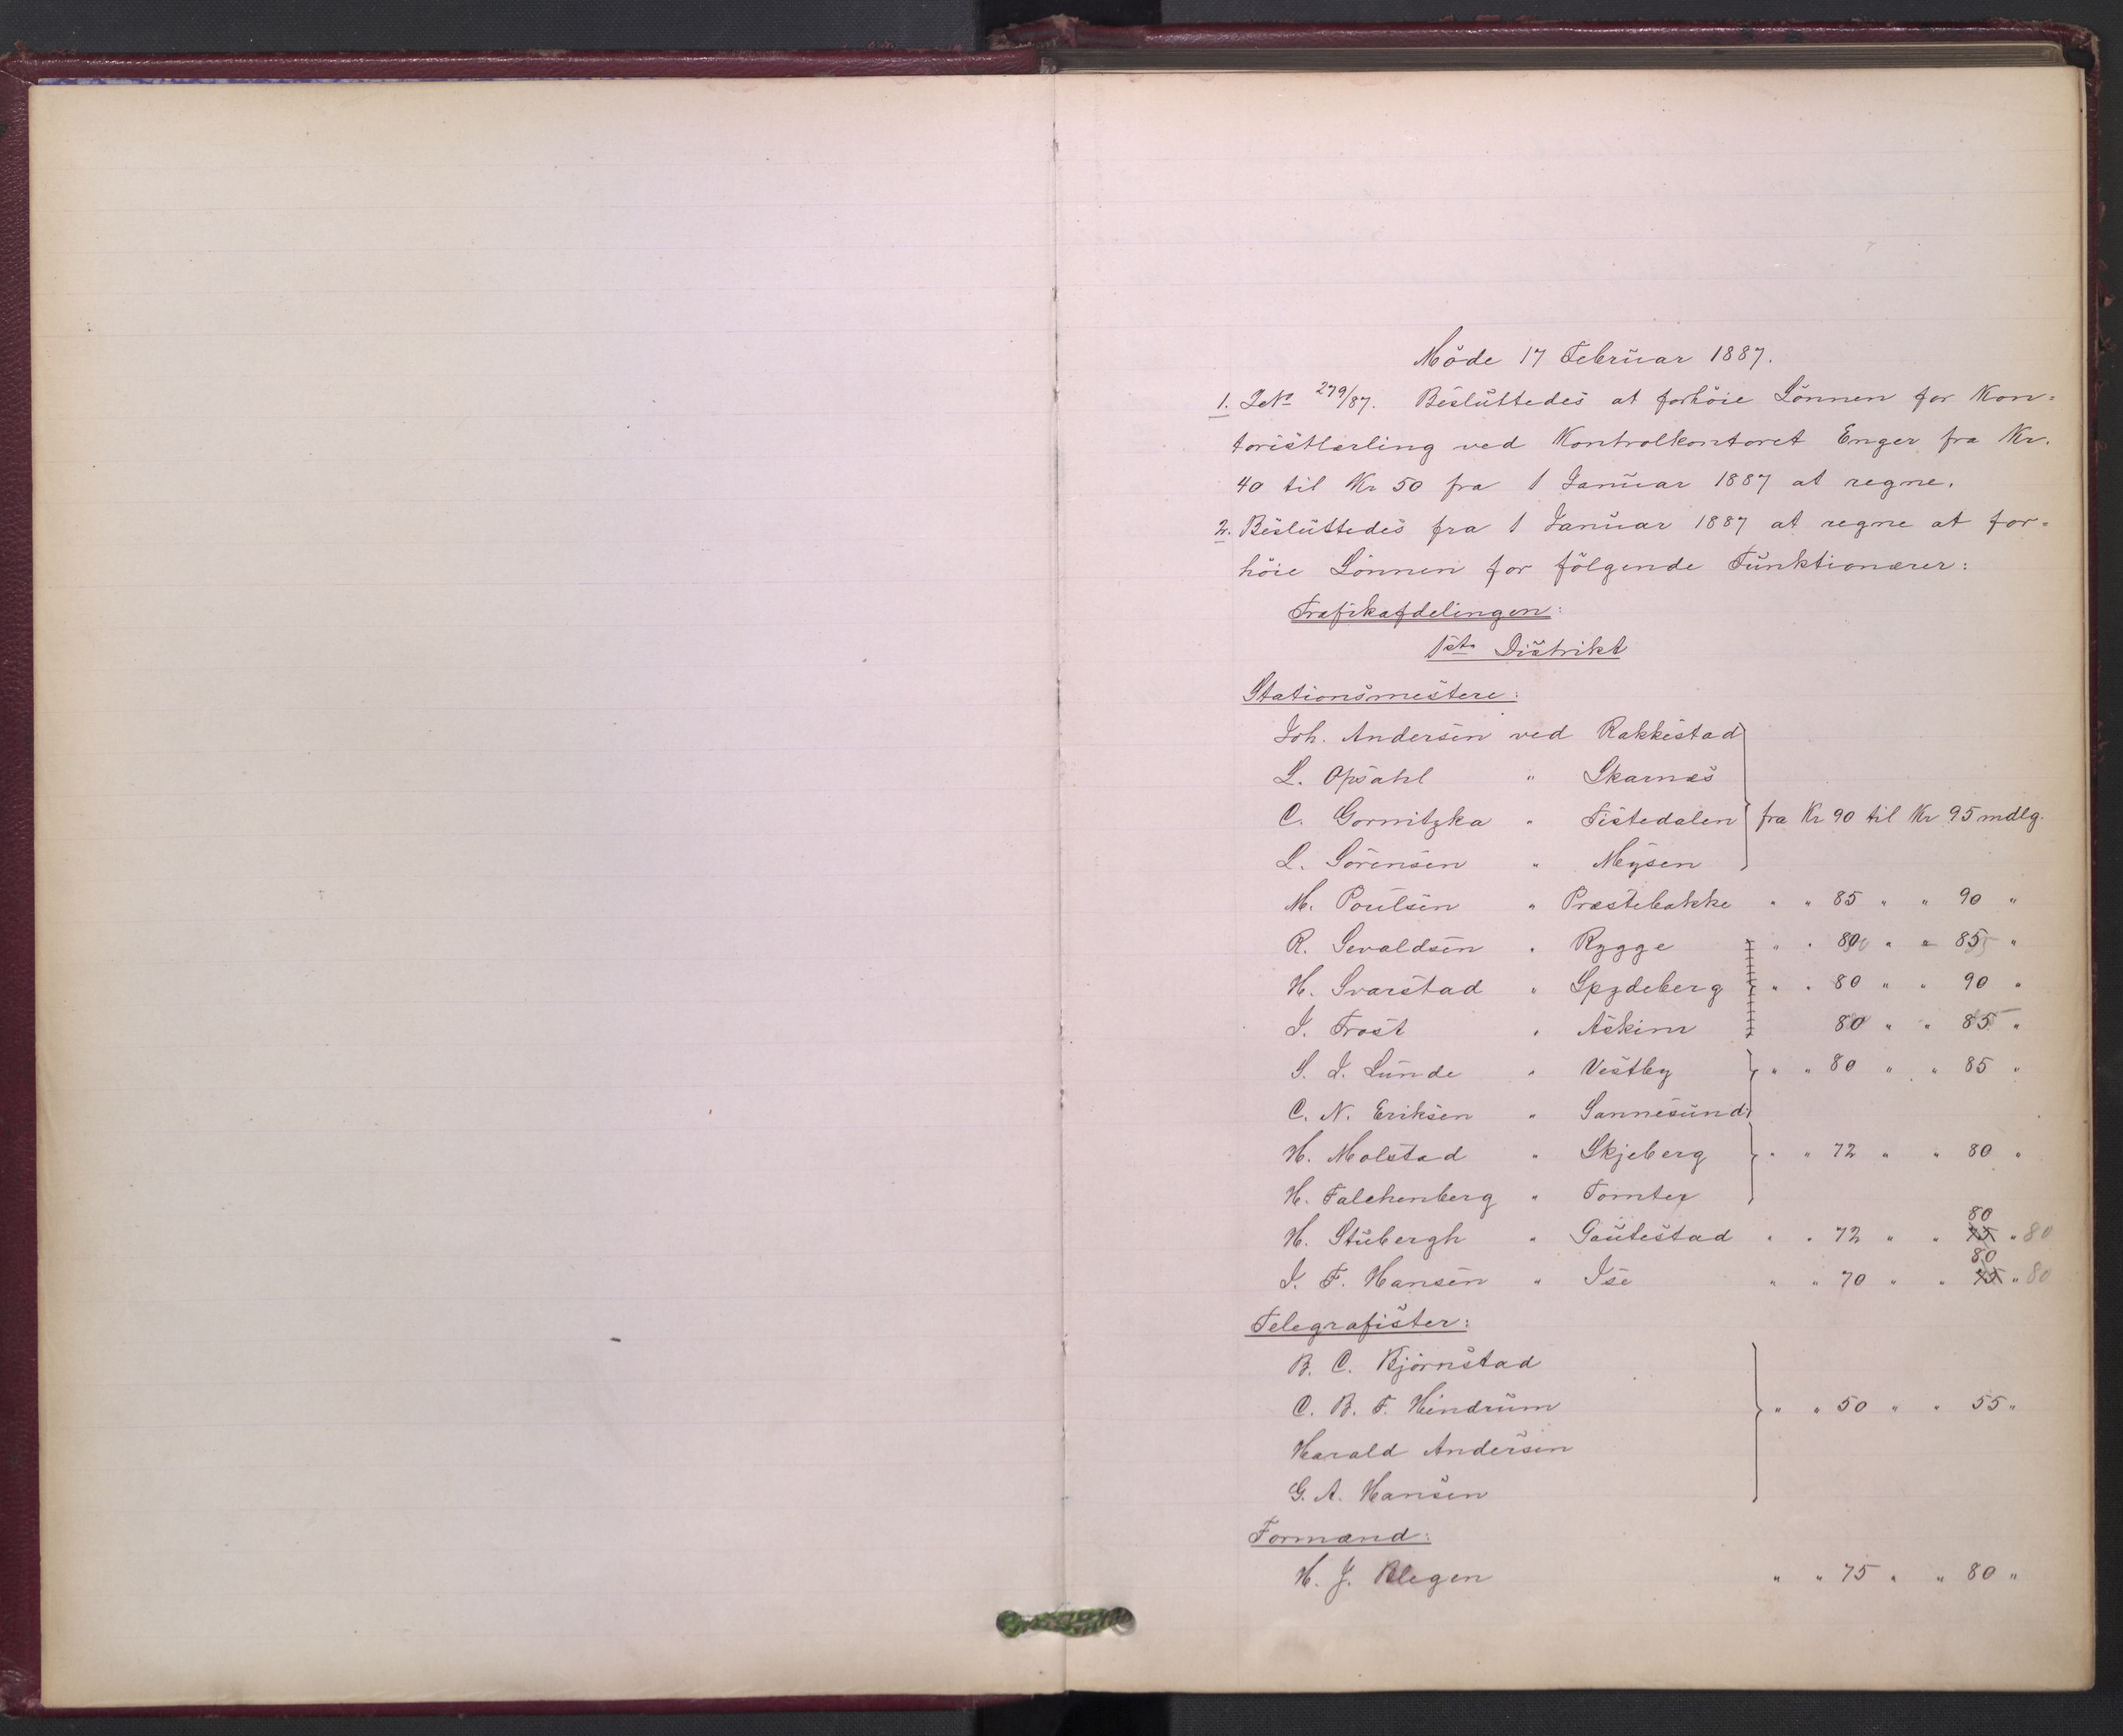 Möde 17 Februar 1887.
1. J№ 279/87. Besluttedes at forhöie Lönnen for Kon=
toristlærling ved Kontrolkontoret Enger fra Kr.
40 til Kr 50 fra 1 Januar 1887 at regne.
2. Besluttedes fra 1 Januar 1887 at regne at for=
höie Lönnen for fölgende Funktionærer:
Trafikafdelingen:
1ste Distrikt
Stationsmestere:
Joh. Andersen ved Rakkestad
L. Opsahl " Skarnæs
C. Gornitzka " Tistedalen fra Kr 90 til Kr 95 mdlg.
L. Sörensen " Mysen
M. Poulsen " Præstebakke " " 85 " " 90 "
R. Sevaldsen " Rygge " " 80 " " 85 "
H. Svarstad " Spydeberg " " 80 " " 90 "
J. Trost " Askim 80 " " 85 "
S. J. Lunde " Vestby " " 80 " " 85 "
C. N. Eriksen " Sannesund
H. Molstad " Skjeberg " " 72 " " 80 "
H. Falchenberg " Tomter
H. Stubergh " Goutestad " " 72 " " 75 80 " 80
J. F. Hansen " Ise " " 70 " " 75 80 " 80
Telegrafister:
B. C. Björnstad
C. B. F. Hindrum " " 50 " " 55 "
Harald Andersen
G. A. Hansen
Formænd:
H. J. Blegen " " 75 " " 80 "